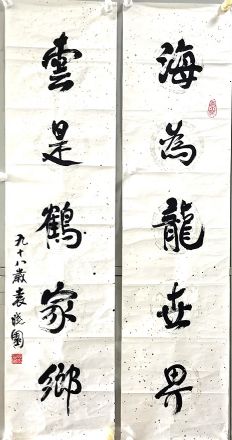 海為龍世界
雲是鶴家鄉
九十八歲袁曉園